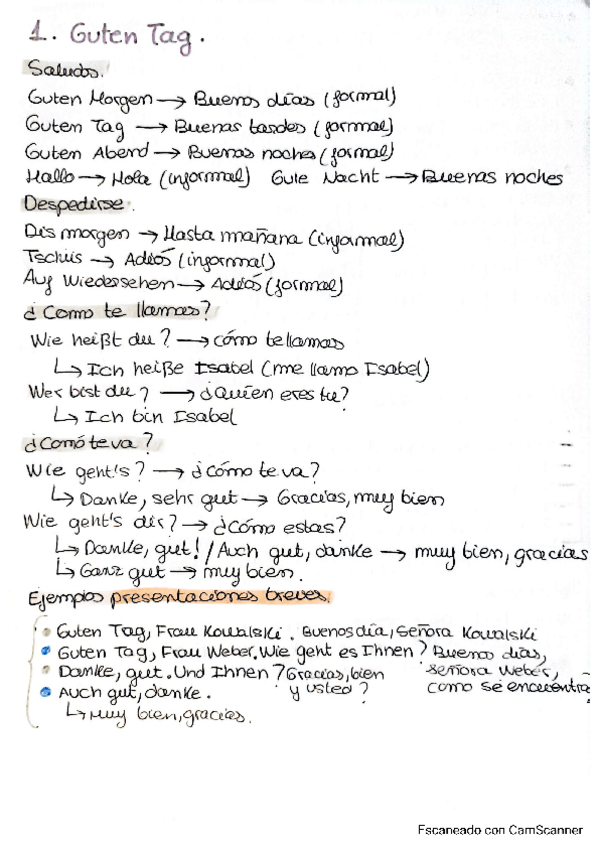 1. Guten Tag.
Saludos.
Guten Morgen → Buenos días (formal)
Guten Tag → Buenas tardes (formal)
Guten Abend → Buenas noches (formal)
Hallo → Hola (informal) Gute Nacht → Buenas noches
Despedirse.
Bis morgen → Hasta mañana (informal)
Tschüs → Adiós (informal)
Auf Wiedersehen → Adiós (formal)
¿Como te llamas?
Wie heißt du? → cómo te llamas
↳ Ich heiße Isabel (me llamo Isabel)
Wer bist du? → ¿Quién eres tu?
↳ Ich bin Isabel
¿Comó te va?
Wie geht's? → ¿Cómo te va?
↳ Danke, sehr gut → Gracias, muy bien
Wie geht's dir? → ¿Cómo estas?
↳ Danke, gut! / Auch gut, danke → muy bien, gracias
↳ Ganz gut → muy bien.
Ejemplos presentaciones breves.
Guten Tag, Frau Kowalski. Buenos día, Señora Kowalski
Guten Tag, Frau Weber, Wie geht es Ihnen? Buenos días,
Danke, gut. Und Ihnen? Gracias, bien señora Weber,
Auch gut, danke. y usted? como se encuentra
↳ Muy bien, gracias.
Escaneado con CamScanner